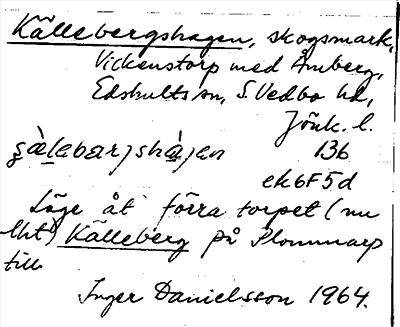 Källebergshagen, skogsmark,
Vickenstorp med Åmberg,
Edshults sn, S. Vedbo hd,
Jönk. l.
136
ek6F5d
Läge åt förra torpet (nu
lht) Källeberg på Plommarp
till.
Inger Danielsson 1964.